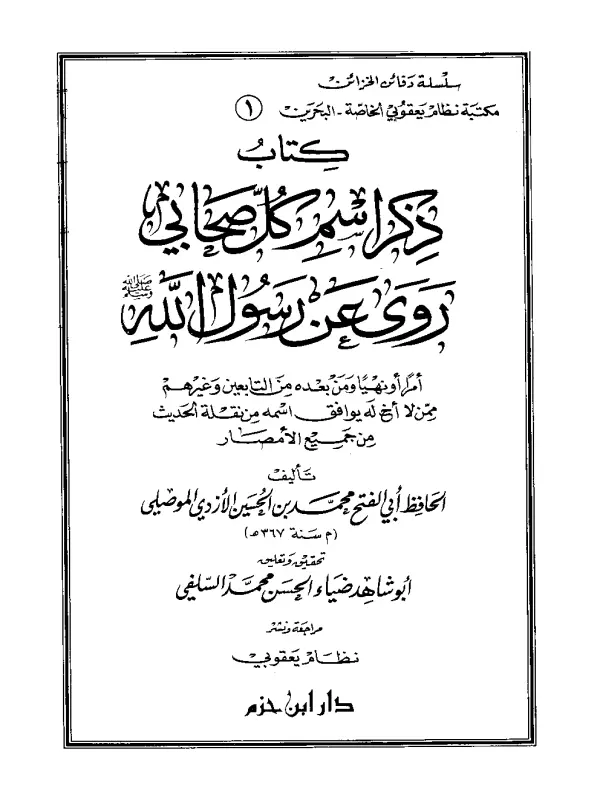 سلسلة دفائن الخزائن
مكتبة نظام يعقوبي الخاصة - البحرين ١
كِتابُ
ذِكر اسْمِ كُلّ صَحَابي
رَوَى عَنْ رَسُول اللَّهِ ﷺ
أمرًا أو نهيًا ومَنْ بعده مِنَ التابعين وغيرهم
ممّن لا أخ له يوافق اسمه مِن نقلة الحديث
مِن جَميع الأمصار
تأليف
الحافظ أبي الفتح محمد بن الحسين الأزدي الموصلي
(م سنة ٣٦٧ هـ)
تحقيق وتعليق
أبو شاهد ضياء الحسن محمد السلفي
مراجعة ونشر
نظام يعقوبي
دار ابن حزم